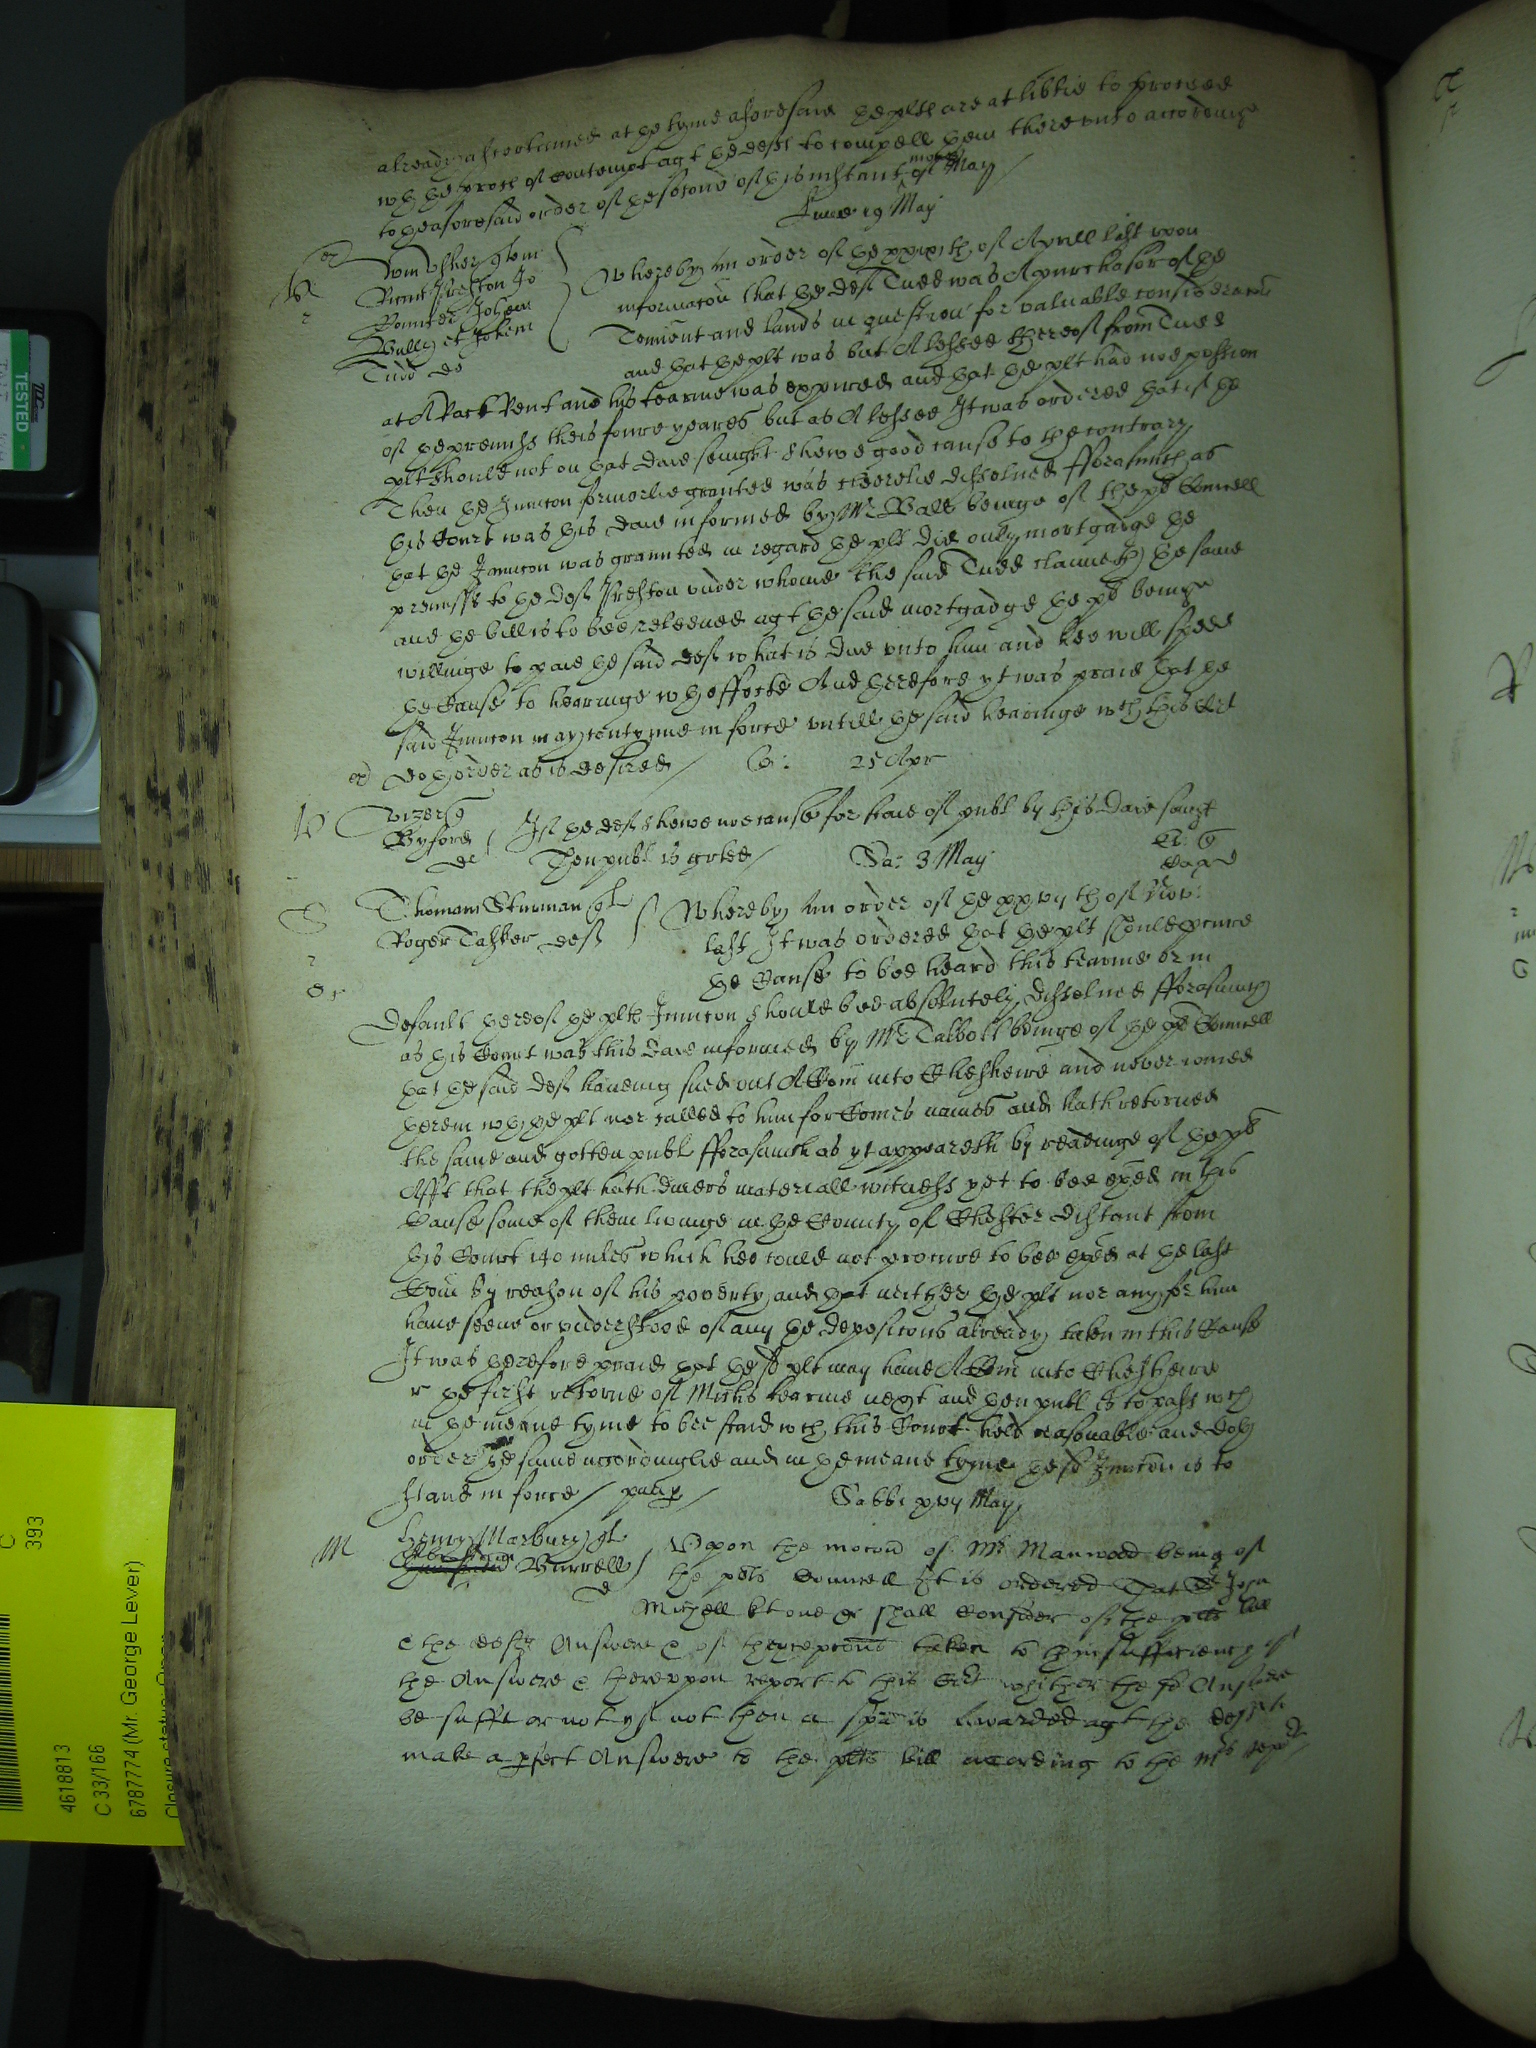 already ascertained at the tyme aforesaid the plts are at libtie to proceed
wth the proces of contempt agt the defts to compell them thereunto accordinge
to the aforesaid order of the second of this instant moneth of May
Lune 19 May
Wm Usher plt
Preston Jo
Johem
et Johem
Tudd de
Whereby an order of the xxixth of Aprill last upon
informacon that the deft Tudd was A purchasor of the
Tenemt and lands in question for valuable consideracon
and that the plt was but A lessee thereof from Tudd
at A Rack Rent and his tearme was expired and that the plt had noe possion
of the premisss theis foure yeares but as A lessee It was ordered that if the
plt should not on that daie senight shewe good cause to the contrary
Then the Iniuncon formerlie granted was cleerelie dissolued fforasmuch as
this Court was this daie informed by Mr Bale beinge of the plts Councell
that the Iniuncon was graunted in regard the plt did only mortgadge the
premisss to the deft Preston under whome the said Tudd claimeth the same
and the bill is to bee releeued agt the said mortgadge the plt beinge
willinge to paie the said deft what is due unto him and hee will speed
the Cause to hearinge wth effecte And therefore yt was praid that the
said Iniuncon may contynue in force untill the said hearinge wch this Crt
doth order as is desired / 25 Apr
W
Byford
de
If the deft shewe noe cause for staie of publ by this daie sevigt
Then publ is grted / Sa: 3 May
S
Thomam Sturman plt
Roger Tasker deft
Whereby an order of the xxvijth of Nov:
last It was ordered that the plt should procure
the Cause to bee heard this tearme or in
Default thereof the plts Iniuncon should bee absolutely dissolued fforasmuch
as this Court was this daie informed by Mr Talbott beinge of the plts Councell
that the said deft haueing sued out A Com into Cheshire and never ioined
therein wth the plt nor called to him for Comrs names and hath retorned
the same and gotten publ fforasmuch as yt appeareth by readinge of the plts
Afft that the plt hath divers materiall witness yet to bee exed in this
Cause some of them livinge in the County of Chester distant from
this Court 140 miles which hee could not procure to bee exed at the last
Com by reason of his poverty and that neither the plt nor any for him
haue seene or understood of any the deposicons already taken in this Cause
It was therefore praid that the sd plt may haue A Com into Cheshire
r the first retorne of Michs tearme next and then publ is to passe wch
in the meane tyme to bee staid wch this Court held reasonable and doth
order the same accordinglie and in the meane tyme the sd Iniuncon is to
stand in force / Sabbi xvij May
M
Henry Marbury plt
Burrell
d
Upon the mocon of Mr Manwood being of
the plts Councell It is ordered That Sr John
Michell kt one &c shall consider of the plts bill
& the defts Answere & of the excepcons taken to thinsufficiency of
the Answere & thereupon report to this Crt whither the sd Answere
be sufft or not yf not then a spa is Awarded agt the deft to
make a pfect Answere to the plts bill according to the Mrs report
TESTED
C
393
4618813
C 33/166
6787774 (Mr. George Lever)
Closure status: Open